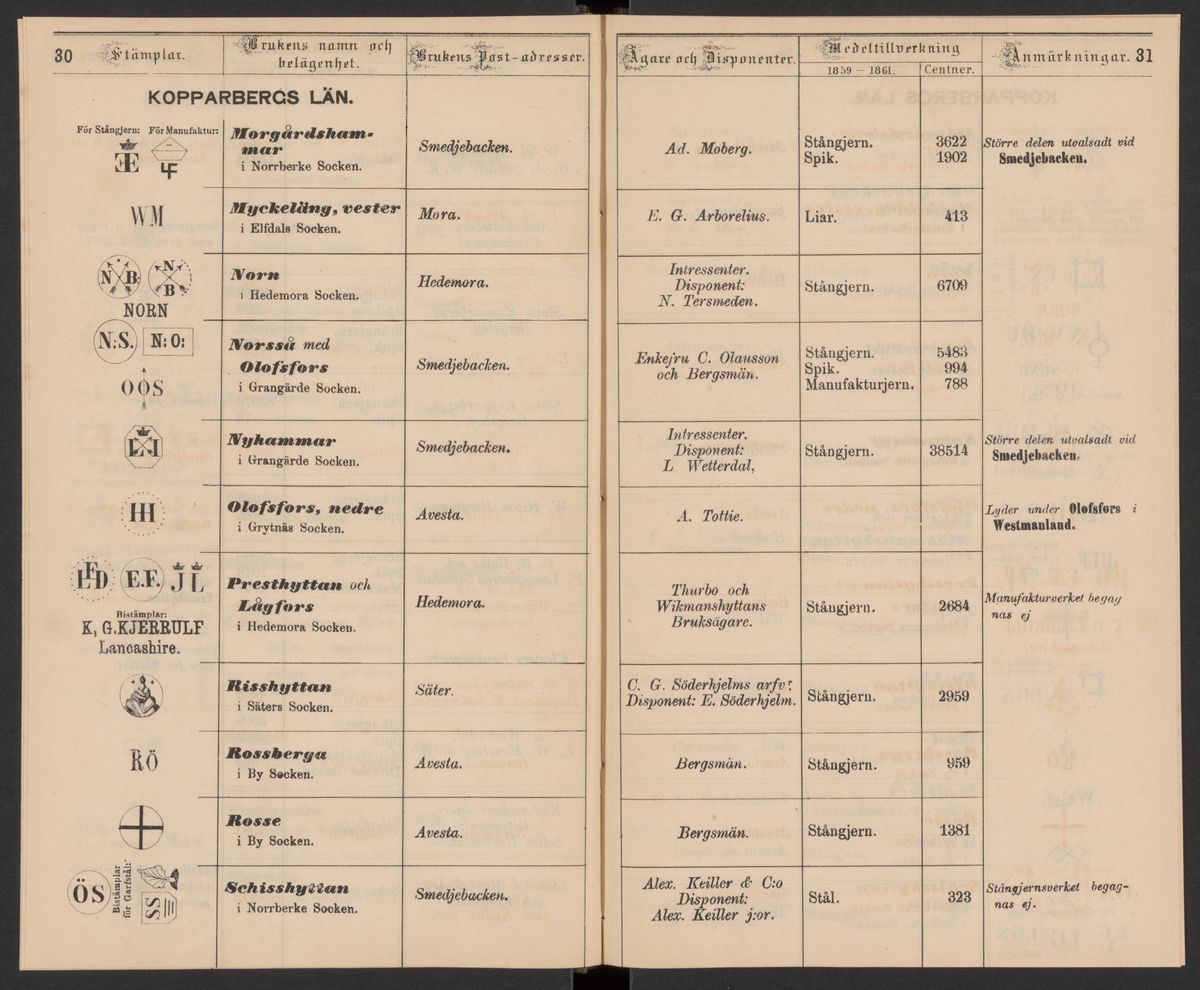 30
Stämplar.
Brukens namn och
belägenhet.
Brukens Post-adresser.
Ägare och Disponenter.
Medeltillverkning
1859 — 1861.
Centner.
Anmärkningar.
31
KOPPARBERGS LÄN.
För Stångjern: För Manufaktur:
Morgårdsham-
mar
i Norrberke Socken.
Smedjebacken.
Ad. Moberg.
Stångjern. 3622
Spik. 1902
Större delen utvalsadt vid
Smedjebacken.
WM
Myckeläng, vester
i Elfdals Socken.
Mora.
E. G. Arborelius.
Liar. 413
N B
N
B
NORN
Norn
i Hedemora Socken.
Hedemora.
Intressenter.
Disponent:
N. Tersmeden.
Stångjern. 6709
N:S. N:O:
OÖS
Norsså med
Olofsfors
i Grangärde Socken.
Smedjebacken.
Enkefru C. Olausson
och Bergsmän.
Stångjern. 5483
Spik. 994
Manufakturjern. 788
Nyhammar
i Grangärde Socken.
Smedjebacken.
Intressenter.
Disponent:
L Wetterdal,
Stångjern. 38514
Större delen utvalsadt vid
Smedjebacken.
Olofsfors, nedre
i Grytnäs Socken.
Avesta.
A. Tottie.
Lyder under Olofsfors i
Westmanland.
E.F. J L
Bistämplar:
K, G. KJERRULF
Lancashire.
Presthyttan och
Lågfors
i Hedemora Socken.
Hedemora.
Thurbo och
Wikmanshyttans
Bruksägare.
Stångjern. 2684
Manufakturverket begag
nas ej
Risshyttan
i Säters Socken.
Säter.
C. G. Söderhjelms arfv:r
Disponent: E. Söderhjelm.
Stångjern. 2959
RÖ
Rossberga
i By Socken.
Avesta.
Bergsmän.
Stångjern. 959
Rosse
i By Socken.
Avesta.
Bergsmän.
Stångjern. 1381
ÖS
Bistämplar
för Garfstål:
SS
Schisshyttan
i Norrberke Socken.
Smedjebacken.
Alex. Keiller & C:o
Disponent:
Alex. Keiller j:or.
Stål. 323
Stångjernsverket begag-
nas ej.